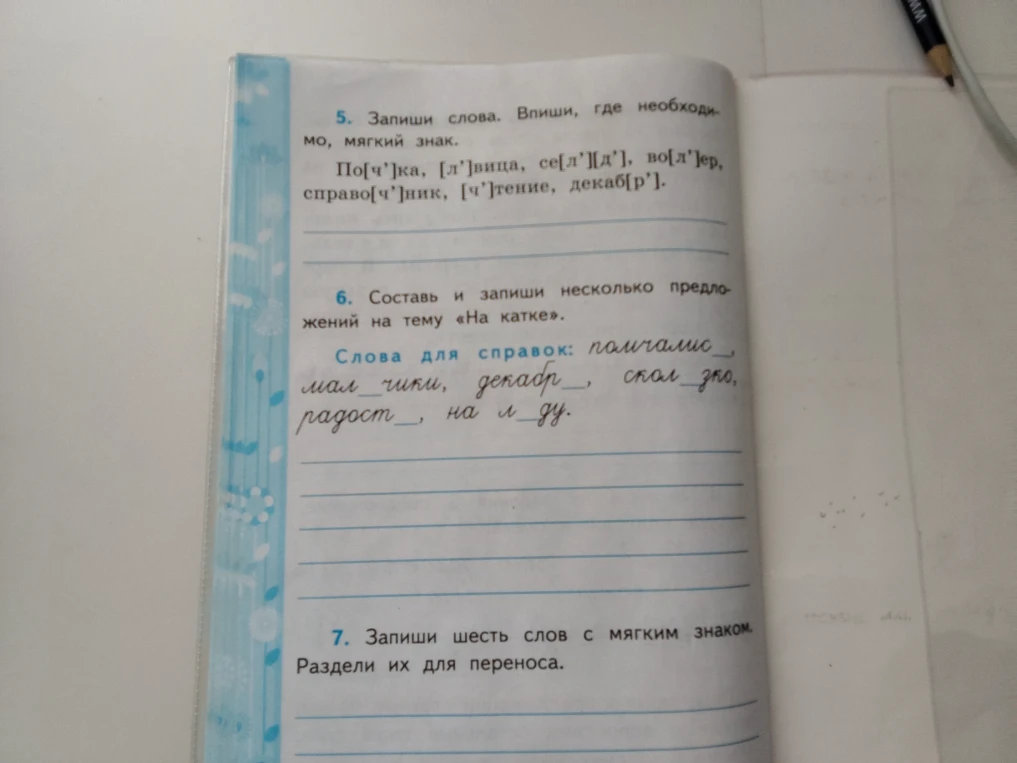 5. Запиши слова. Впиши, где необходи-
мо, мягкий знак.
По[ч’]ка, [л’]вица, се[л’][д’], во[л’]ер,
справо[ч’]ник, [ч’]тение, декаб[р’].
6. Составь и запиши несколько предло-
жений на тему «На катке».
Слова для справок: помчалис_,
мал_чики, декабр_, скол_зко,
радост_, на л_ду.
7. Запиши шесть слов с мягким знаком.
Раздели их для переноса.